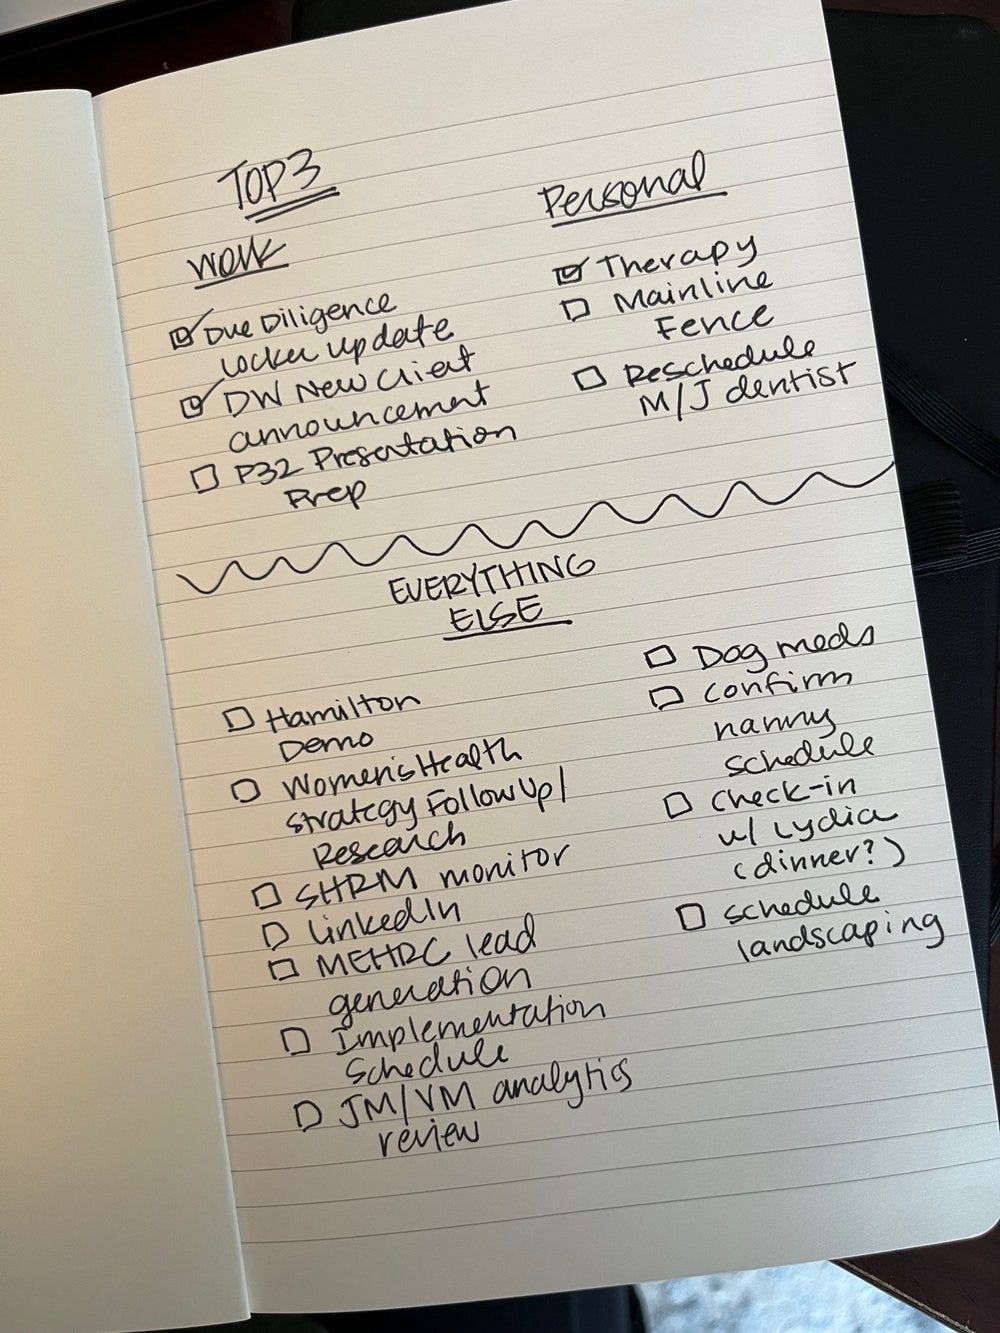 TOP 3
Work
Due Diligence
Locker update
DW New Client
announcement
P32 Presentation
Prep
Personal
Therapy
Mainline
Fence
Reschedule
M/J dentist
EVERYTHING
ELSE
Hamilton
Demo
Women's Health
strategy Follow Up/
Research
SHRM monitor
LinkedIn
MEHRC lead
generation
Implementation
Schedule
JM/VM analytics
review
Dog meds
confirm
nanny
schedule
check-in
w/ Lydia
(dinner?)
schedule
landscaping